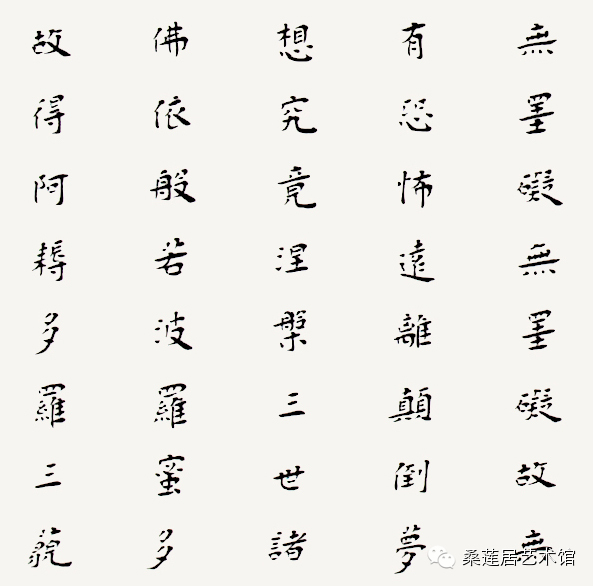 無罣礙無罣礙故無
有恐怖遠離顛倒夢
想究竟涅槃三世諸
佛依般若波羅蜜多
故得阿耨多羅三藐
桑莲居艺术馆